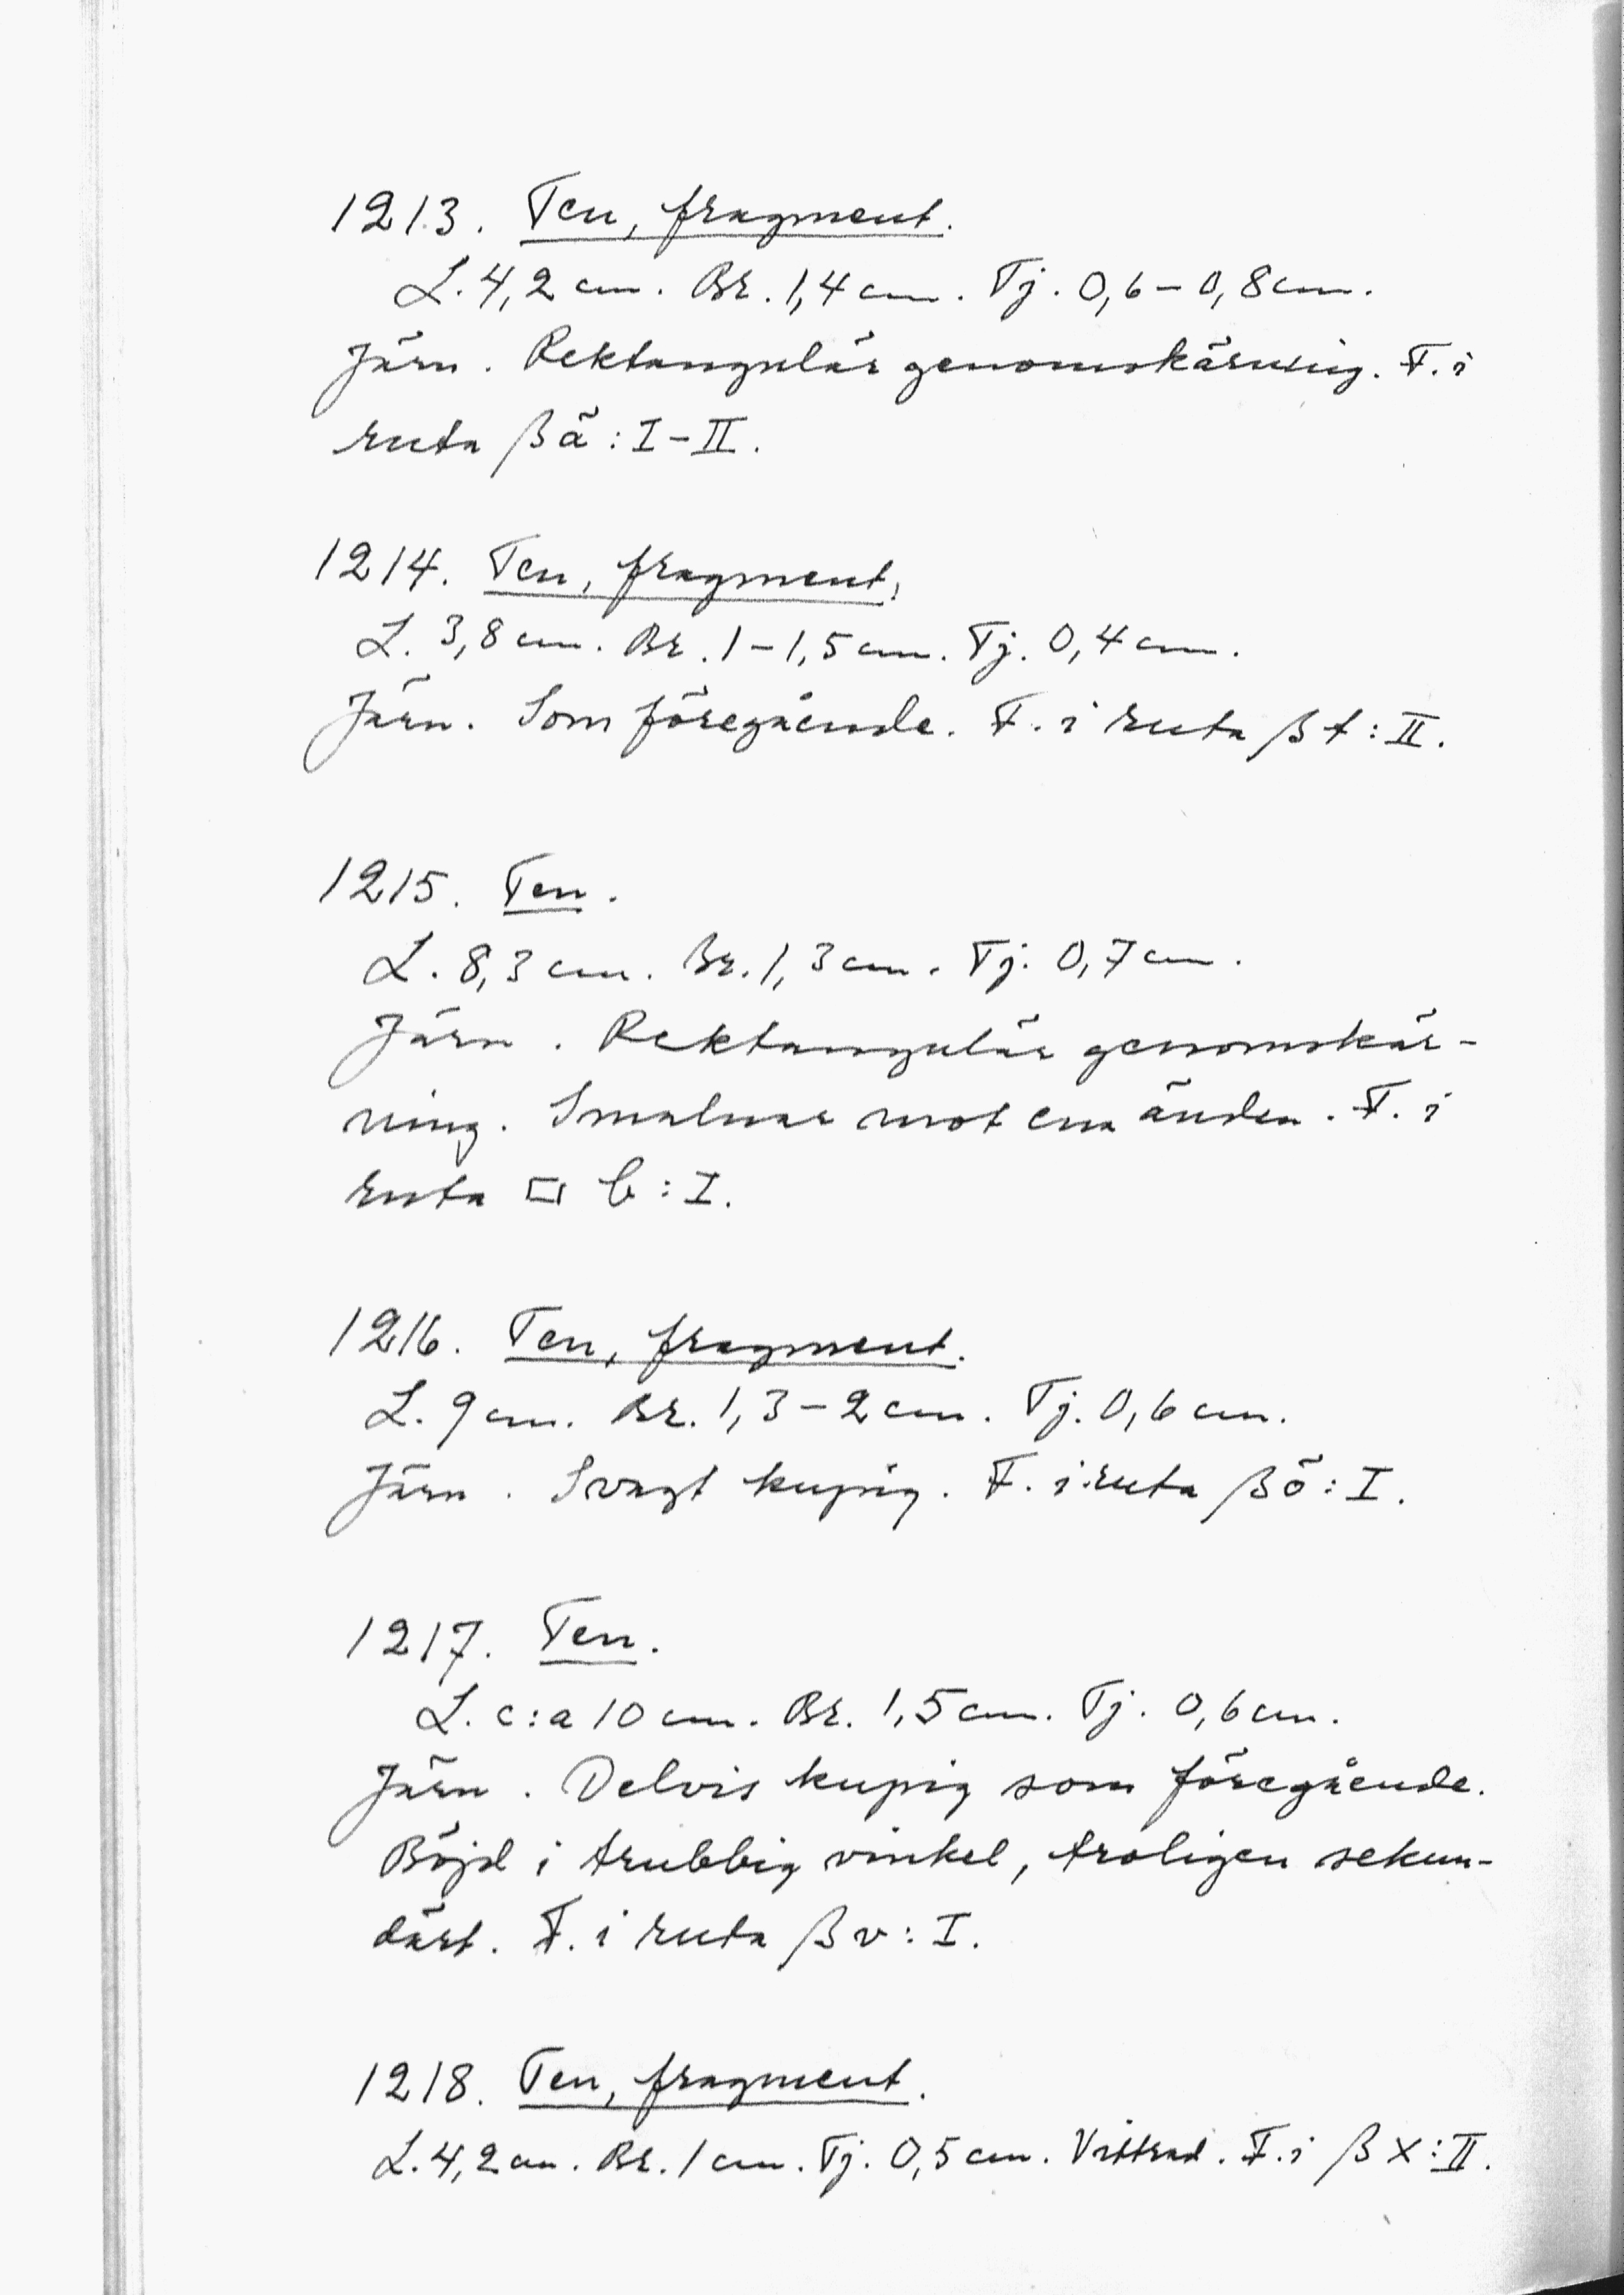 1213. Ten, fragment.
L. 4,2 cm. Br. 1,4 cm. Tj. 0,6-0,8 cm.
Järn. Rektangulär genomskärning. F. i
ruta β ä : I-II.
1214. Ten, fragment.
L. 3,8 cm. Br. 1-1,5 cm. Tj. 0,4 cm.
Järn. Som föregående. F. i ruta β t : II.
1215. Ten.
L. 8,3 cm. Br. 1,3 cm. Tj. 0,7 cm.
Järn. Rektangulär genomskär-
ning. Smalnar mot ena änden. F. i
ruta □ b : I.
1216. Ten, fragment.
L. 9 cm. Br. 1,3-2 cm. Tj. 0,6 cm.
Järn. Svagt kupig. F. i ruta β ö : I.
1217. Ten.
L. c:a 10 cm. Br. 1,5 cm. Tj. 0,6 cm.
Järn. Delvis kupig som föregående.
Böjd i trubbig vinkel, troligen sekun-
därt. F. i ruta β v : I.
1218. Ten, fragment.
L. 4,2 cm. Br. 1 cm. Tj. 0,5 cm. Vittrad. F. i β x : II.